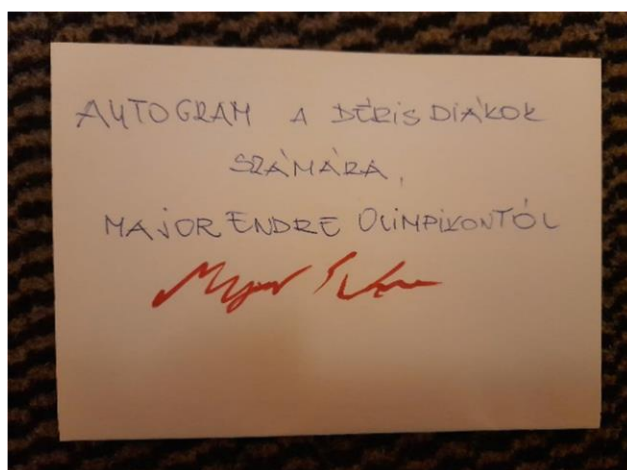 AUTOGRAM A DÉRIS DIÁKOK
SZÁMÁRA,
MAJOR ENDRE OLIMPIKONTÓL